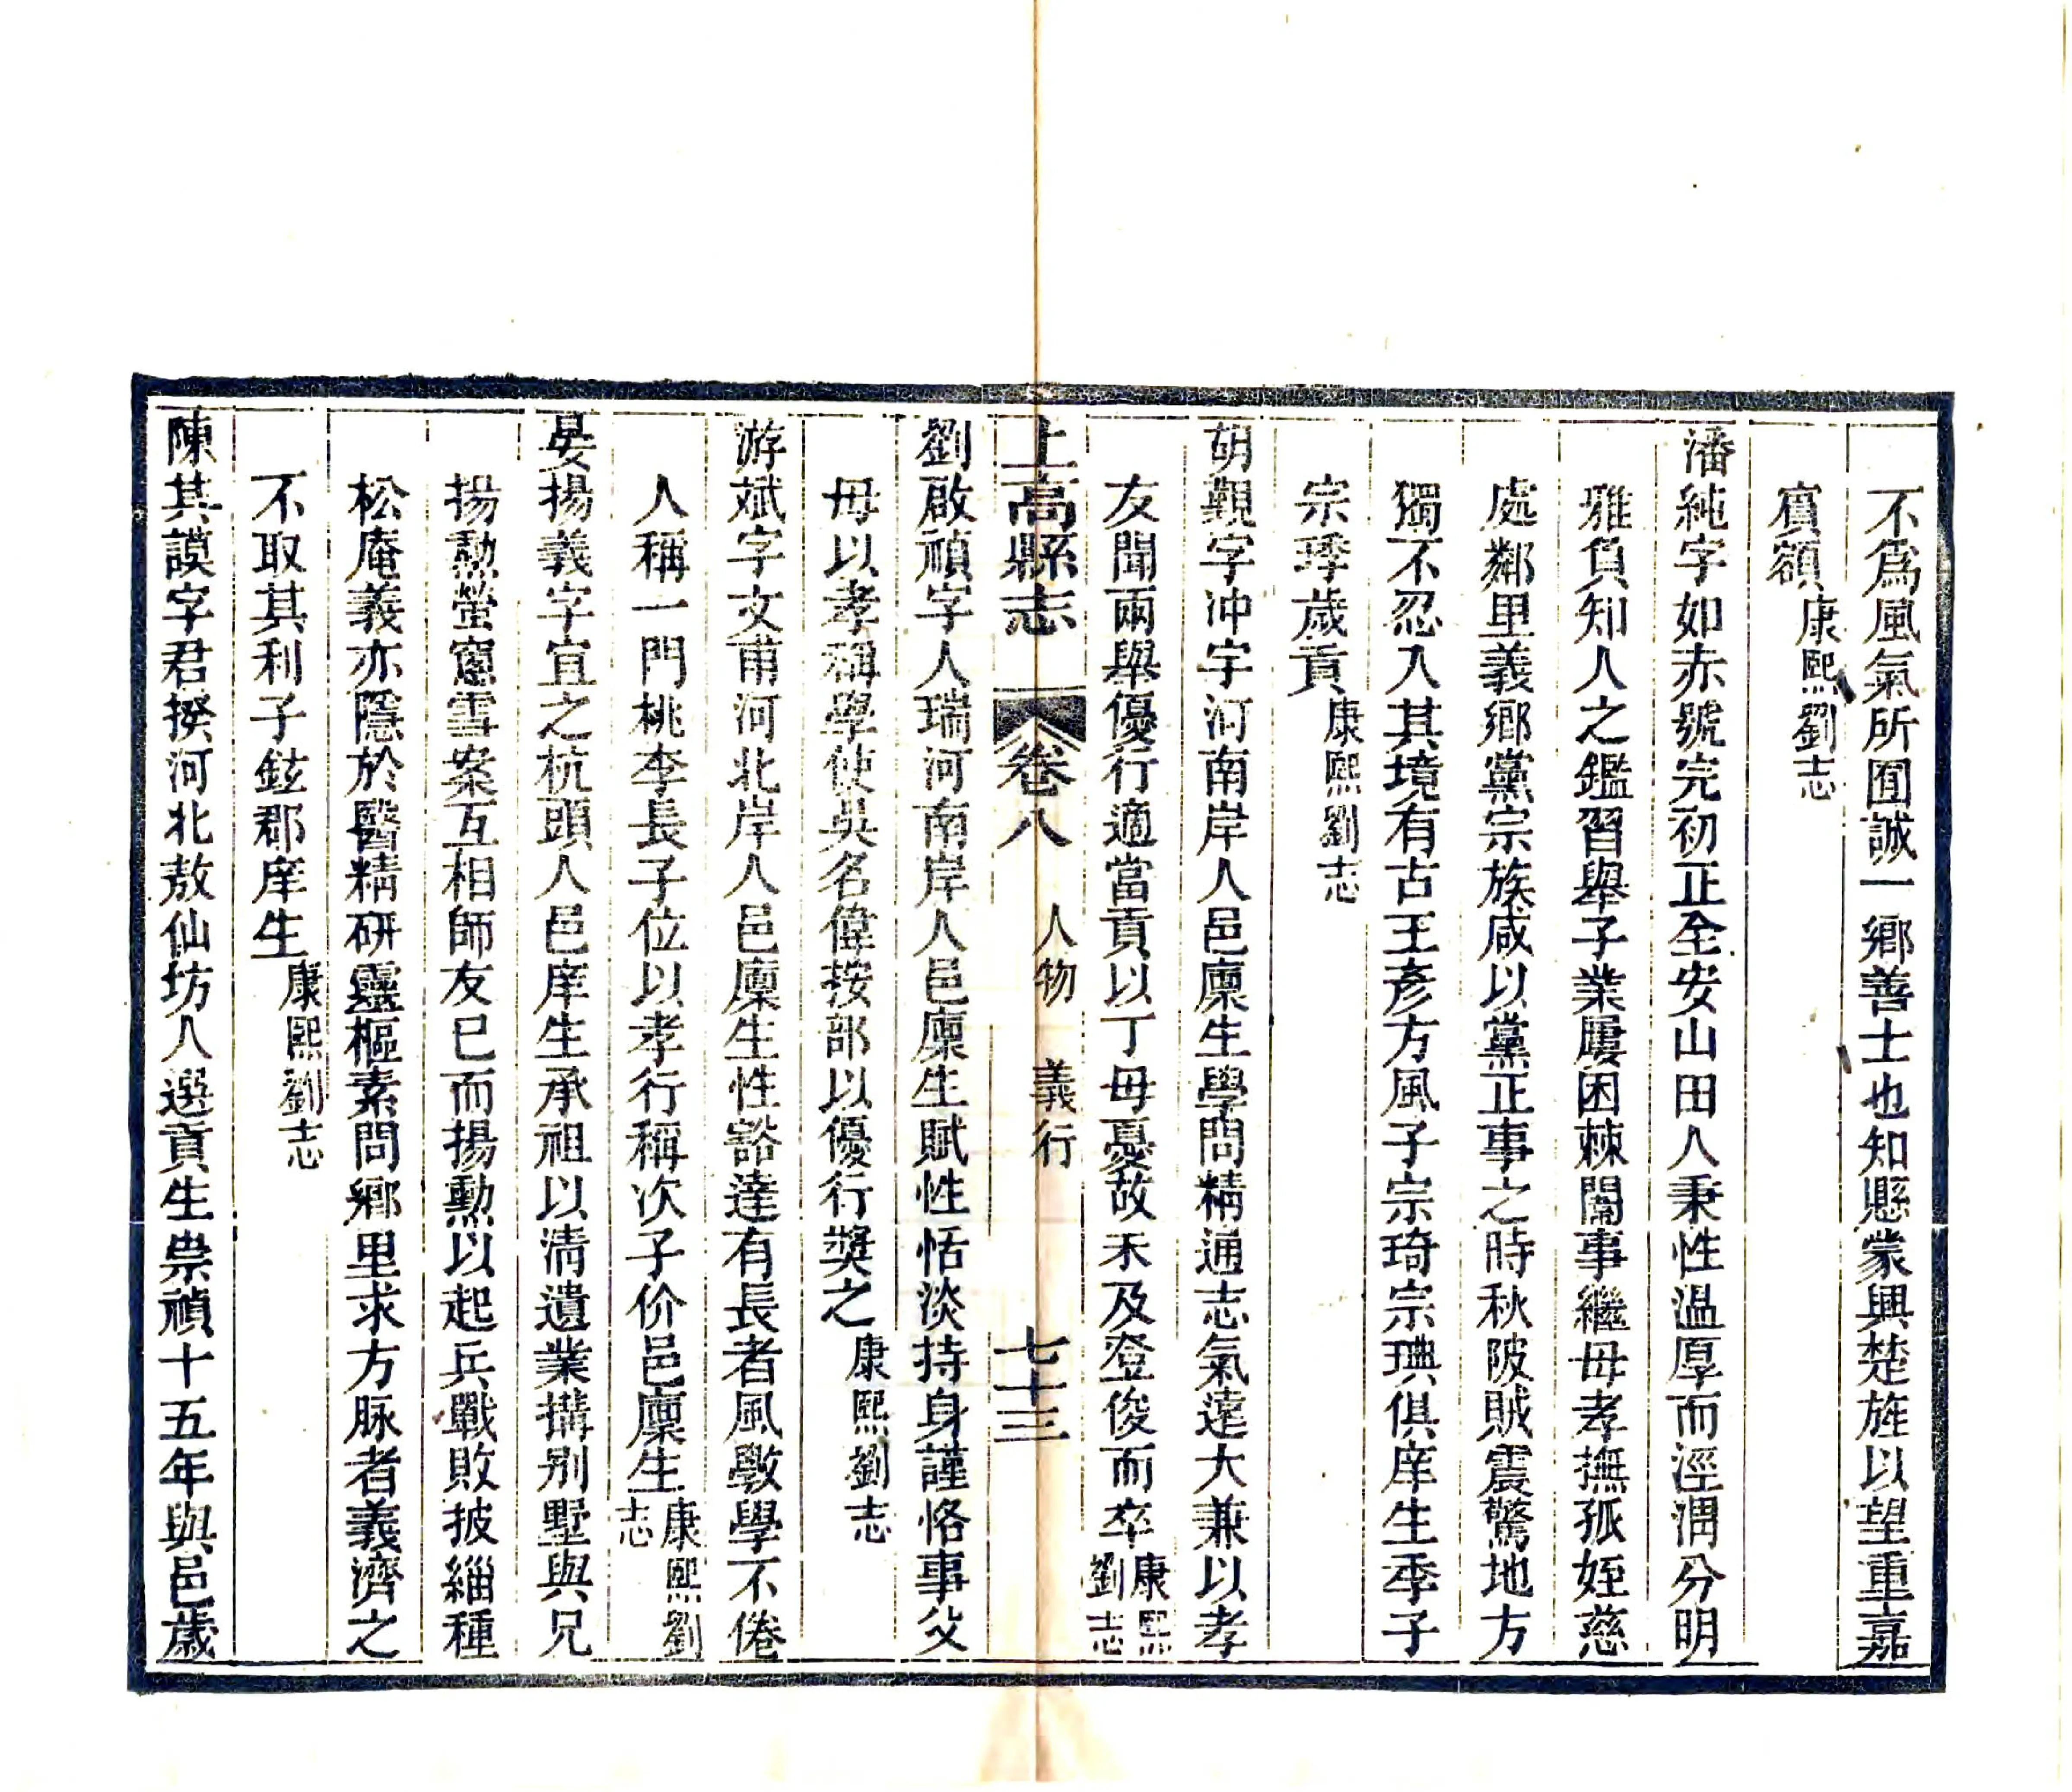 不爲風氣所囿誠一鄉善士也知縣蒙興楚旌以望重嘉
賓額康熙劉志
潘純字如赤號完初正全安山田人秉性温厚而涇渭分明
雅負知人之鑑習舉子業屢困棘闈事繼母孝撫孤姪慈
處鄰里義鄉黨宗族咸以黨正事之時秋陂賊震驚地方
獨不忍入其境有古王彥方風子宗琦宗琠俱庠生季子
宗琒歲貢康熙劉志
胡觀字冲宇河南岸人邑廩生學問精通志氣遠大兼以孝
友聞兩舉優行適當貢以丁母憂故未及登俊而卒康熙劉志
上高縣志 卷八 人物 義行 七十三
劉啟禎字人瑞河南岸人邑廩生賦性恬淡持身謹恪事父
母以孝稱學使吳名偉按部以優行獎之康熙劉志
游斌字文甫河北岸人邑廩生性豁達有長者風斆學不倦
人稱一門桃李長子位以孝行稱次子价邑廩生康熙劉志
晏揚義字宜之杭頭人邑庠生承祖以清遺業搆别墅與兄
揚勲螢窻雪案互相師友已而揚勲以起兵戰敗披緇種
松庵義亦隱於醫精研靈樞素問鄉里求方脉者義濟之
不取其利子鉉郡庠生康熙劉志
陳其謨字君揆河北敖仙坊人選貢生崇禎十五年與邑歲